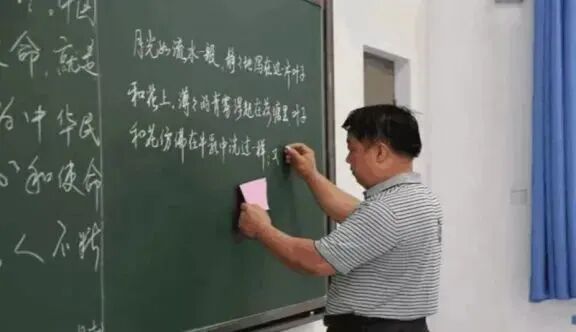 中国
命，就是
为中华民
和使命
人不
月光如流水一般，静々地泻在这一片叶子
和花上。薄々的青雾浮起在荷塘里。叶子
和花仿佛在牛乳中洗过一样；又